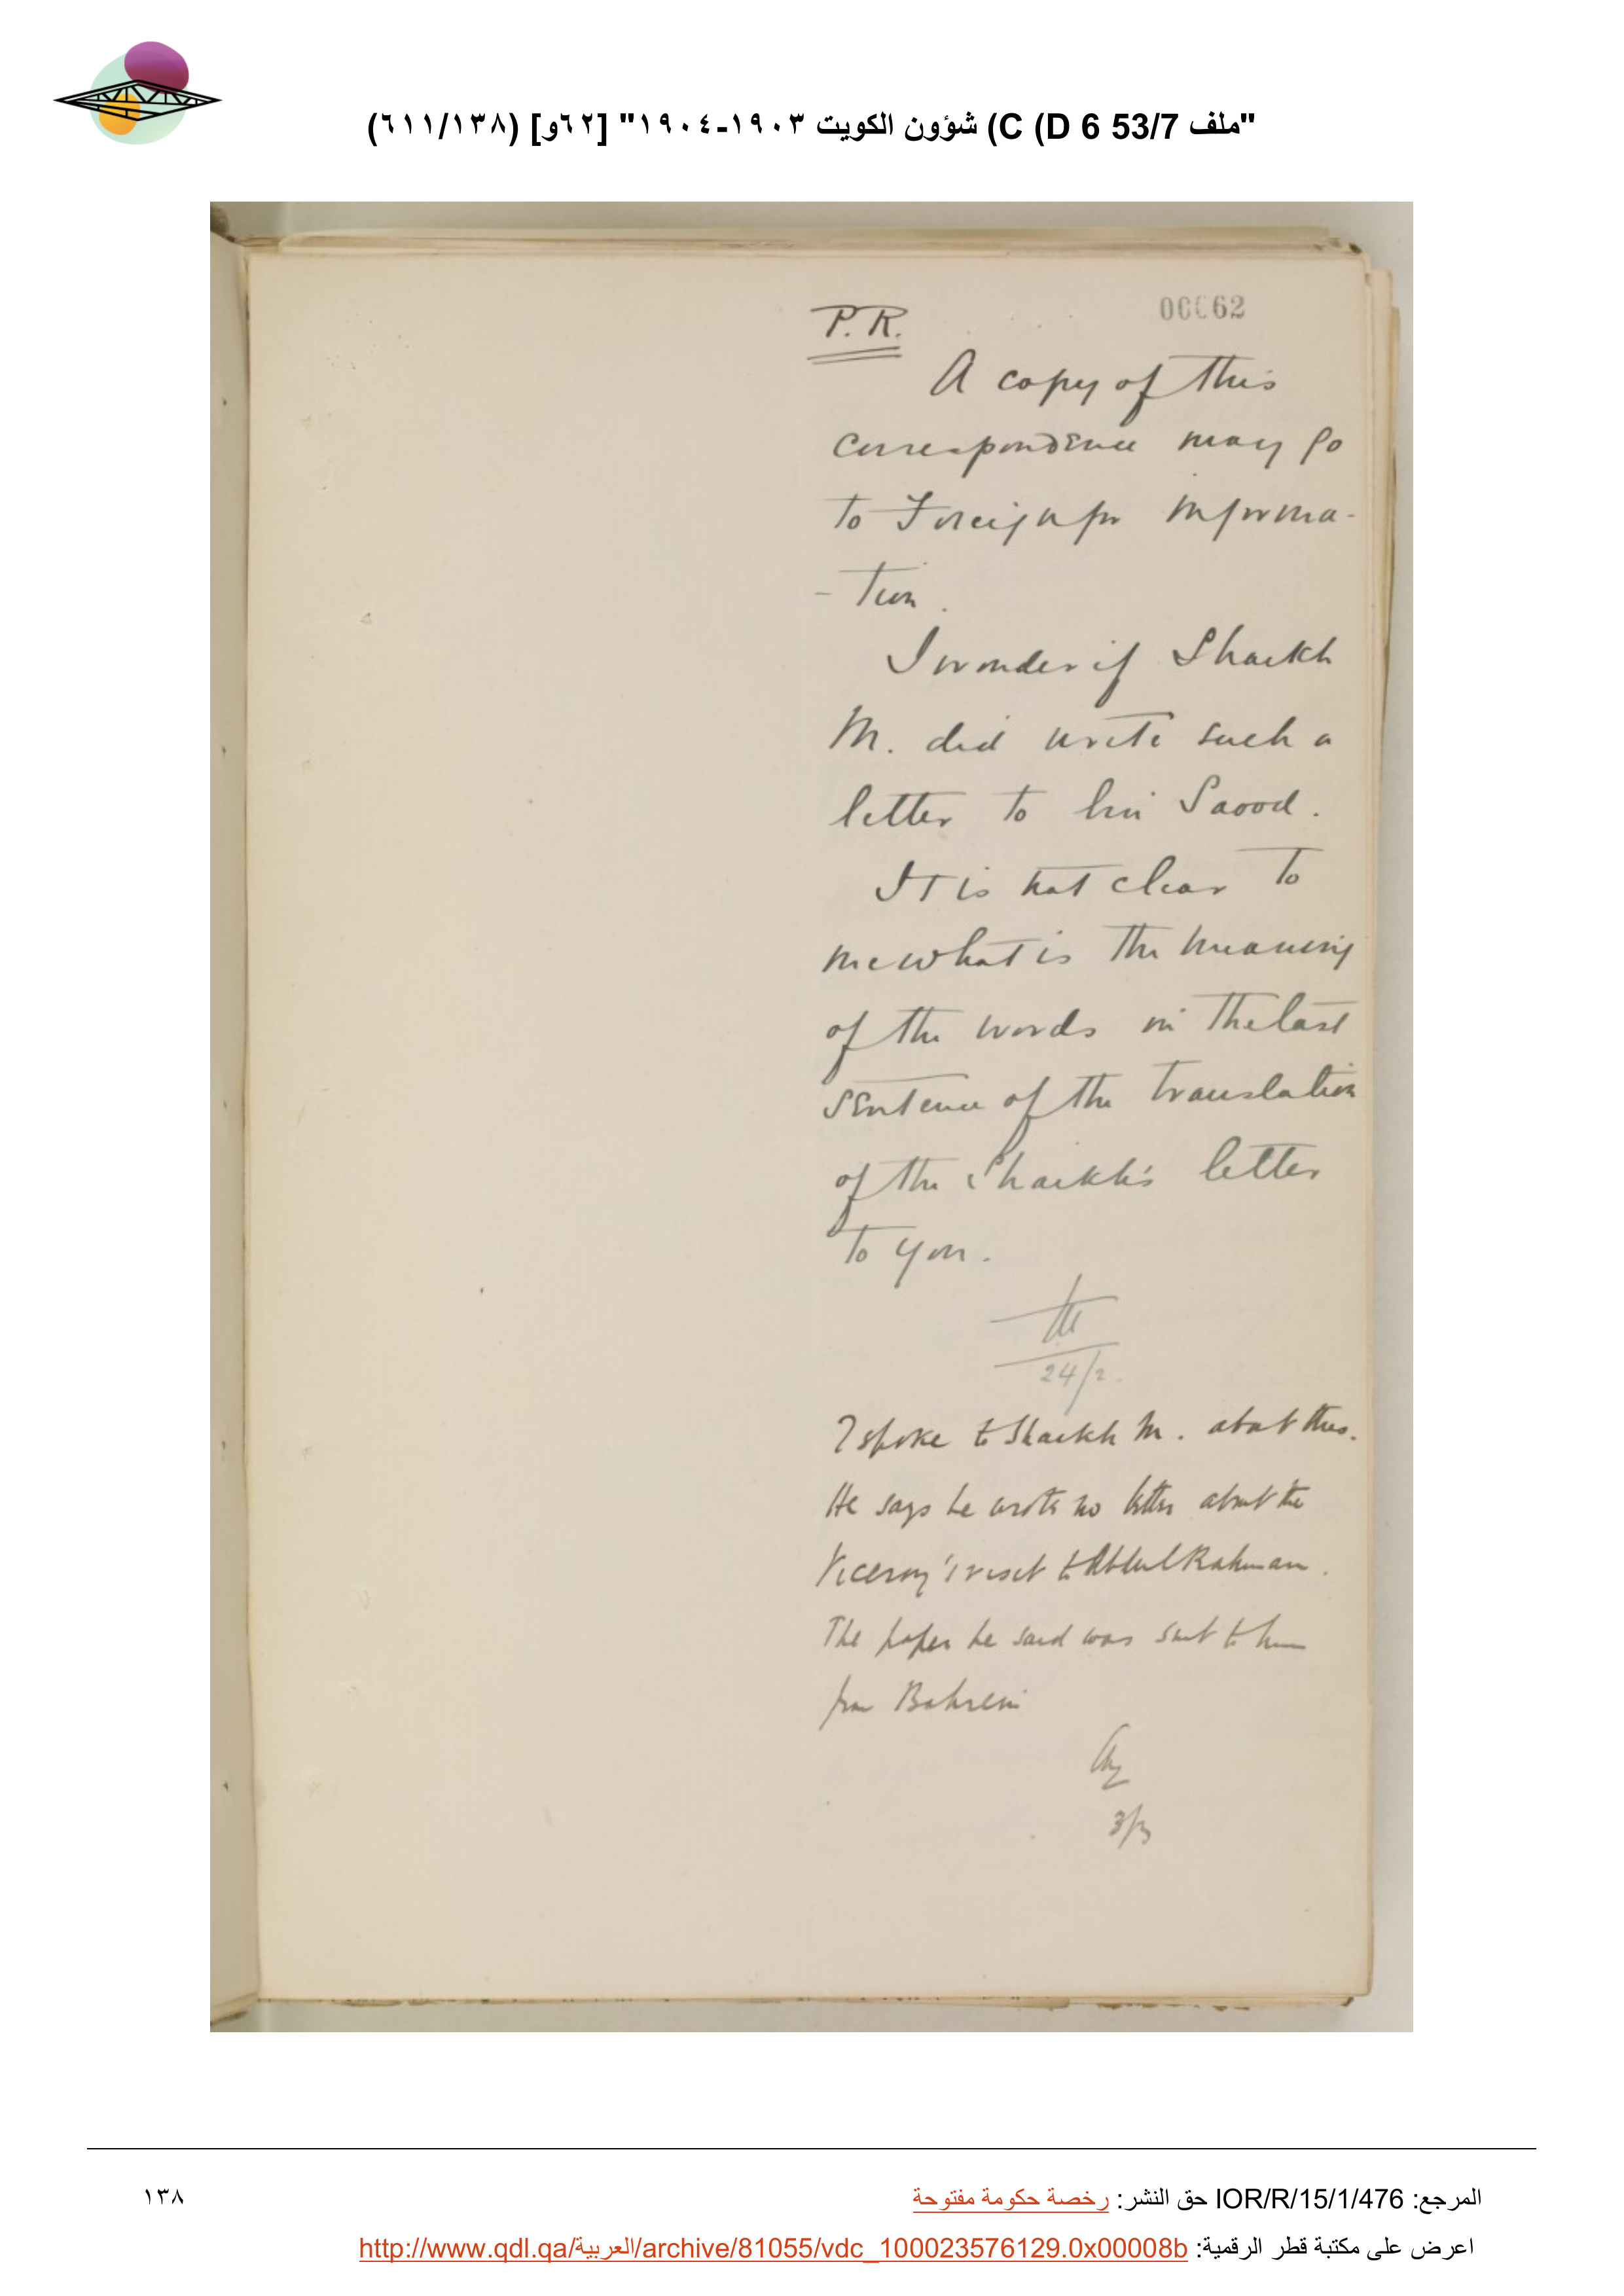 "ملف 53/7 D 6) C) شؤون الكويت ١٩٠٣-١٩٠٤" [٦٢و] (٦١١/١٣٨)
00062
P. R.
A copy of this
correspondence may go
to Foreign for informa-
- tion.
I wonder if Shaikh
M. did write such a
letter to bin Saood.
It is not clear to
me what is the meaning
of the words in the last
sentence of the translation
of the Shaikh's letter
to you.
24/2.
I spoke to Shaikh M. about this.
He says he wrote no letter about the
Viceroy's visit to Abdul Rahman.
The paper he said was sent to him
from Bahrein
3/3
المرجع: IOR/R/15/1/476 حق النشر: رخصة حكومة مفتوحة
١٣٨
اعرض على مكتبة قطر الرقمية: http://www.qdl.qa/العربية/archive/81055/vdc_100023576129.0x00008b